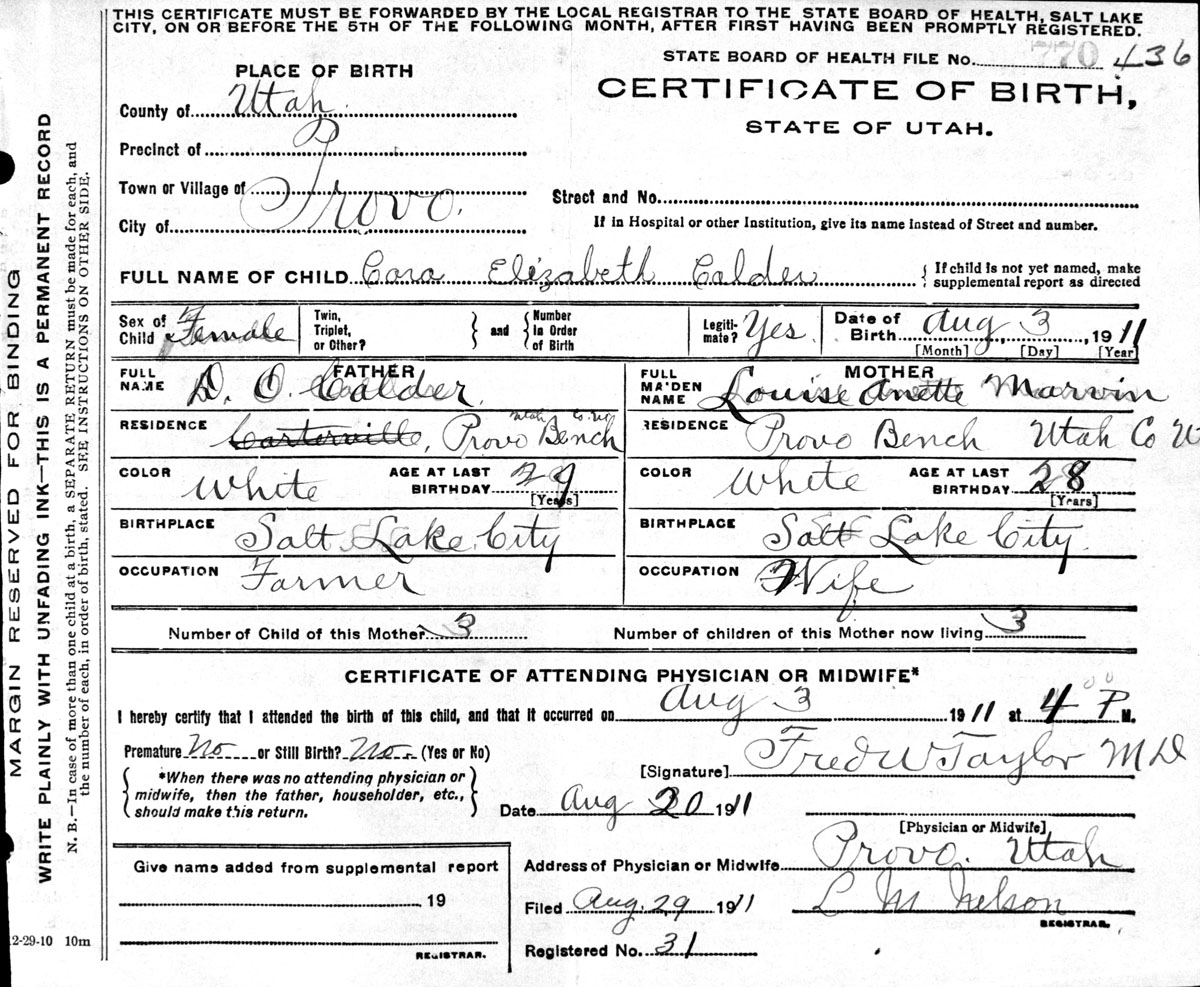 THIS CERTIFICATE MUST BE FORWARDED BY THE LOCAL REGISTRAR TO THE STATE BOARD OF HEALTH, SALT LAKE
CITY, ON OR BEFORE THE 5TH OF THE FOLLOWING MONTH, AFTER FIRST HAVING BEEN PROMPTLY REGISTERED.
STATE BOARD OF HEALTH FILE No. 770 436
PLACE OF BIRTH
CERTIFICATE OF BIRTH,
STATE OF UTAH.
County of Utah.
Precinct of
Town or Village of
City of Provo.
Street and No.
If in Hospital or other Institution, give its name instead of Street and number.
FULL NAME OF CHILD Cora Elizabeth Calder
If child is not yet named, make
supplemental report as directed
Sex of Child Female Twin, Triplet, or Other? and Number in Order of Birth Legiti-mate? Yes. Date of Birth Aug 3, 1911
[Month] [Day] [Year]
FATHER MOTHER
FULL NAME D. O. Calder. FULL MAIDEN NAME Louise Anette Marvin
RESIDENCE Carterville, Provo Bench Utah Co. RESIDENCE Provo Bench Utah Co
COLOR White AGE AT LAST BIRTHDAY 29 [Years] COLOR White AGE AT LAST BIRTHDAY 28 [Years]
BIRTHPLACE Salt Lake City BIRTHPLACE Salt Lake City.
OCCUPATION Farmer OCCUPATION Wife
Number of Child of this Mother 3 Number of children of this Mother now living 3
CERTIFICATE OF ATTENDING PHYSICIAN OR MIDWIFE*
I hereby certify that I attended the birth of this child, and that it occurred on Aug 3 1911 at 4 00 P M.
Premature No or Still Birth? No (Yes or No)
[Signature] Fred W Taylor M D
*When there was no attending physician or
midwife, then the father, householder, etc.,
should make this return.
Date Aug 20 1911
[Physician or Midwife]
Give name added from supplemental report
19
REGISTRAR.
Address of Physician or Midwife Provo. Utah
Filed Aug. 29 1911 L M Nelson
REGISTRAR.
Registered No. 31
2-29-10 10m
MARGIN RESERVED FOR BINDING
WRITE PLAINLY WITH UNFADING INK—THIS IS A PERMANENT RECORD
N. B.—In case of more than one child at a birth, a SEPARATE RETURN must be made for each, and
the number of each, in order of birth, stated. SEE INSTRUCTIONS ON OTHER SIDE.